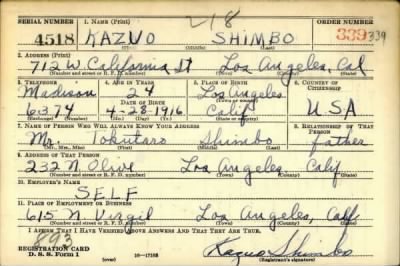 SERIAL NUMBER 1. NAME (Print) ORDER NUMBER
218
4518 KAZUO SHIMBO 339 339
(First) (Middle) (Last)
2. ADDRESS (Print)
712 W. California St Los Angeles, Cal
(Number and street or R. F. D. number) (Town) (County) (State)
3. TELEPHONE 4. AGE IN YEARS 5. PLACE OF BIRTH 6. COUNTRY OF CITIZENSHIP
Madison 24 Los Angeles
DATE OF BIRTH (Town or county)
6374 4-28-1916 Calif USA
(Exchange) (No.) (Mo.) (Day) (Yr.) (State or country)
7. NAME OF PERSON WHO WILL ALWAYS KNOW YOUR ADDRESS 8. RELATIONSHIP OF THAT PERSON
Mr. Tokutaro Shimbo father
(Mr., Mrs., Miss) (First) (Middle) (Last)
9. ADDRESS OF THAT PERSON
232 N Olive Los Angeles Calif
(Number and street or R. F. D. number) (Town) (County) (State)
10. EMPLOYER'S NAME
SELF
11. PLACE OF EMPLOYMENT OR BUSINESS
615 N Virgil Los Angeles, Calif
(Number and street or R. F. D. number) (Town) (County) (State)
I AFFIRM THAT I HAVE VERIFIED ABOVE ANSWERS AND THAT THEY ARE TRUE.
893
REGISTRATION CARD Kazuo Shimbo
D. S. S. Form 1 (over) 16—17105 (Registrant's signature)